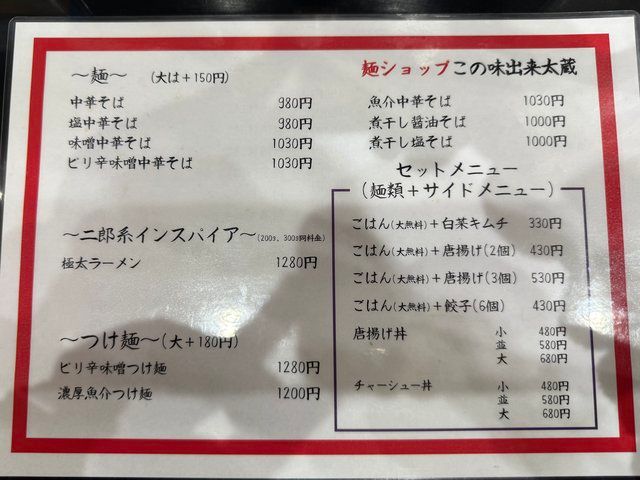 ～麺～ （大は＋150円）
中華そば 980円
塩中華そば 980円
味噌中華そば 1030円
ピリ辛味噌中華そば 1030円
～二郎系インスパイア～（200g、300g同料金）
極太ラーメン 1280円
～つけ麺～（大＋180円）
ピリ辛味噌つけ麺 1280円
濃厚魚介つけ麺 1200円
麺ショップこの味出来太蔵
魚介中華そば 1030円
煮干し醤油そば 1000円
煮干し塩そば 1000円
セットメニュー
（麺類＋サイドメニュー）
ごはん（大無料）＋白菜キムチ 330円
ごはん（大無料）＋唐揚げ（2個） 430円
ごはん（大無料）＋唐揚げ（3個） 530円
ごはん（大無料）＋餃子（6個） 430円
唐揚げ丼 小 480円
並 580円
大 680円
チャーシュー丼 小 480円
並 580円
大 680円